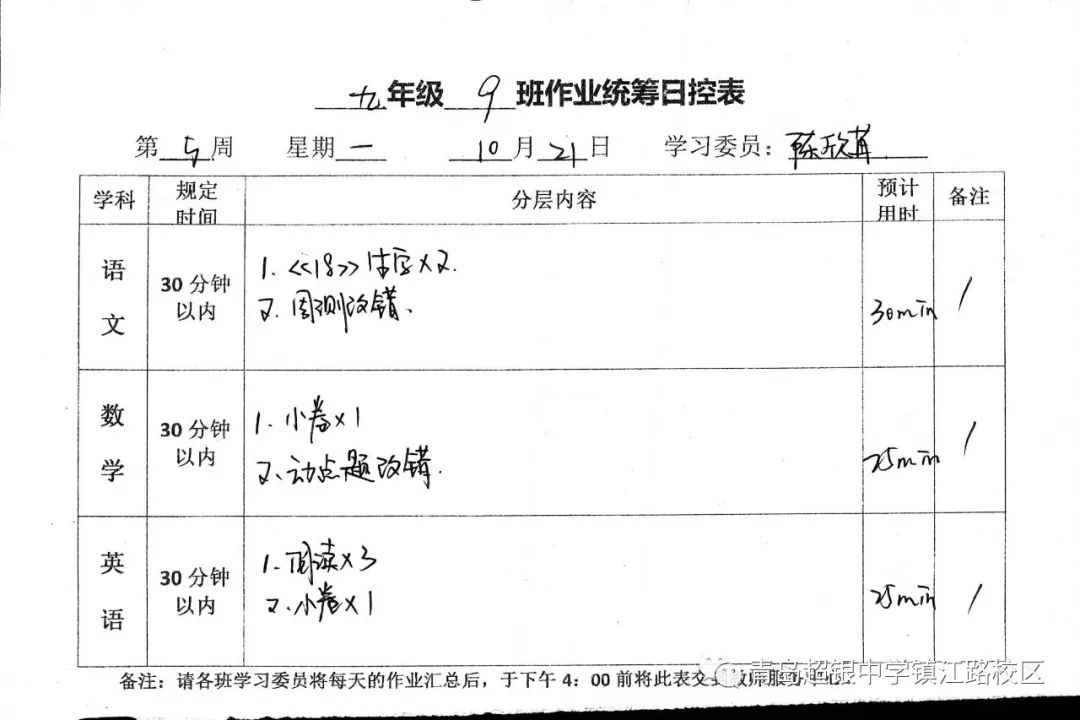 九年级 9 班作业统筹日控表
第 5 周 星期 一 10 月 21 日 学习委员：陈欣茸
学科 规定时间 分层内容 预计用时 备注
语文 30分钟以内 30min /
1. <<18>> 生字×2.
2. 周测改错.
数学 30分钟以内 25min /
1. 小卷×1
2. 动点题改错.
英语 30分钟以内 25min /
1. 阅读×3
2. 小卷×1
备注：请各班学习委员将每天的作业汇总后，于下午4：00前将此表交至教师服务中心。
青岛超银中学镇江路校区